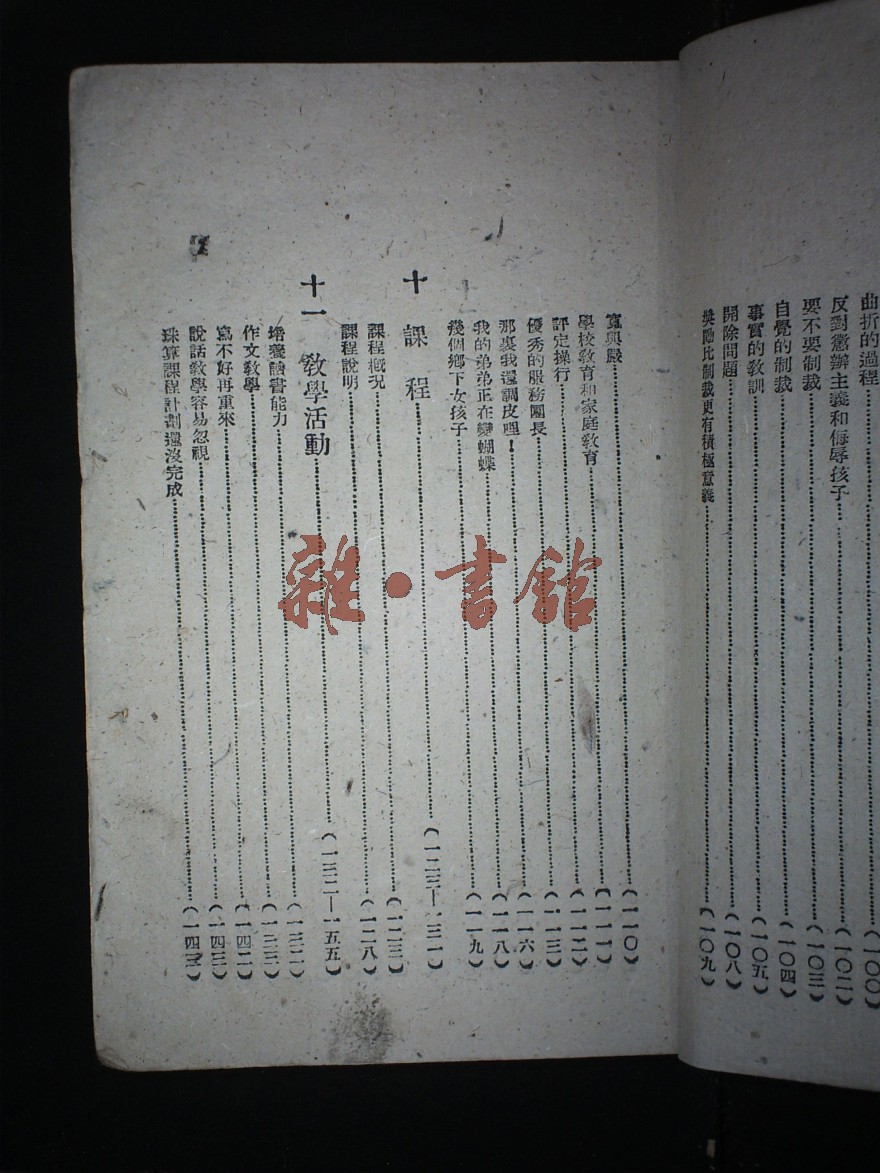 曲折的過程（一〇〇）
反對懲辦主義和侮辱孩子（一〇二）
要不要制裁（一〇三）
自覺的制裁（一〇四）
事實的教訓（一〇五）
開除問題（一〇八）
獎勵比制裁更有積極意義（一〇九）
寬與嚴（一一〇）
學校教育和家庭教育（一一一）
評定操行（一一二）
優秀的服務團長（一一三）
那裏我還調皮哩！（一一六）
我的弟弟正在變蝴蝶（一一八）
幾個鄉下女孩子（一一九）
十 課程（一二三—一三一）
課程概況（一二三）
課程說明（一二八）
十一 教學活動（一三二—一五五）
培養讀書能力（一三二）
作文教學（一三三）
寫不好再重來（一四二）
說話教學容易忽視（一四三）
珠算課程計劃還沒完成（一四三）
雜·書館